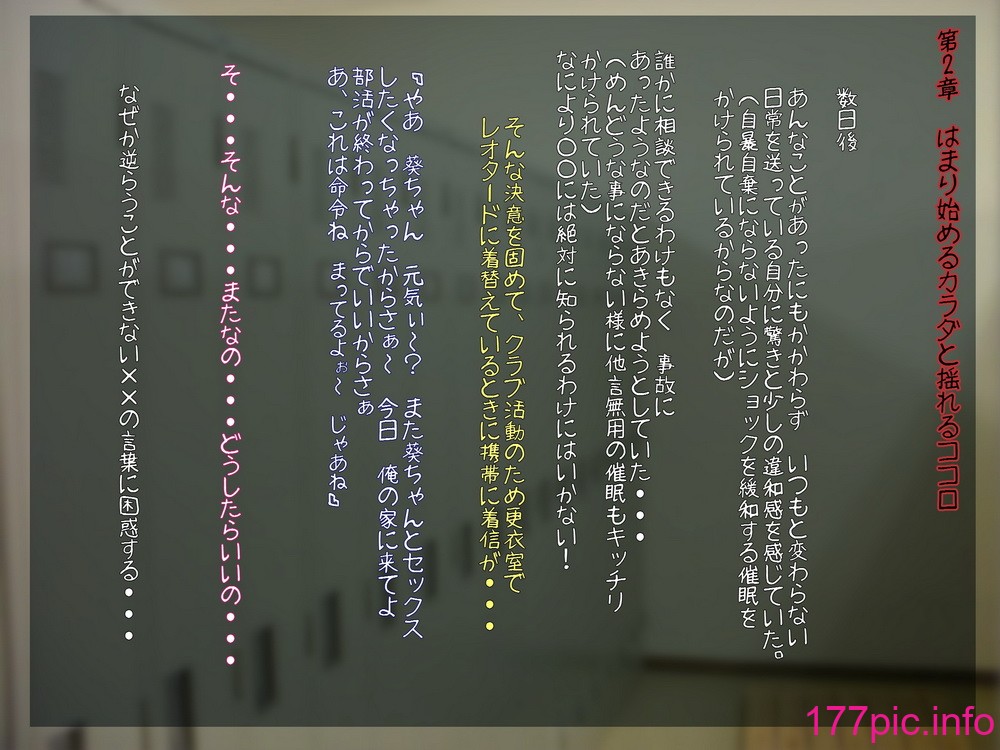 第2章 はまり始めるカラダと揺れるココロ
数日後
あんなことがあったにもかかわらず いつもと変わらない
日常を送っている自分に驚きと少しの違和感を感じていた。
(自暴自棄にならないようにショックを緩和する催眠を
かけられているからなのだが)
誰かに相談できるわけもなく 事故に
あったようなのだとあきらめようとしていた・・・
(めんどうな事にならない様に他言無用の催眠もキッチリ
かけられていた)
なにより○○には絶対に知られるわけにはいかない!
そんな決意を固めて、クラブ活動のため更衣室で
レオタードに着替えているときに携帯に着信が・・・
『やあ 葵ちゃん 元気ぃ~? また葵ちゃんとセックス
したくなっちゃったからさぁ~ 今日 俺の家に来てよ
部活が終わってからでいいからさぁ
あ、これは命令ね まってるよぉ~ じゃあね』
そ・・・そんな・・・またなの・・・どうしたらいいの・・・
なぜか逆らうことができない××の言葉に困惑する・・・
177pic.info